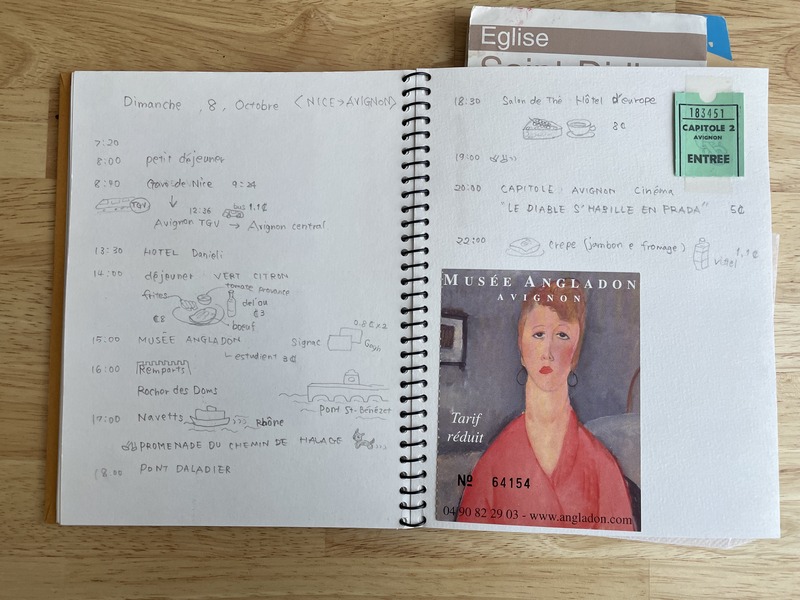 Eglise
Dimanche , 8, Octobre <NICE→AVIGNON>
7:20
8:00 petit déjeuner
8:40 Gare de Nice 9:24
TGV
12:36 bus 1.1€
Avignon TGV → Avignon central
13:30 HOTEL Danieli
14:00 déjeuner VERT CITRON
frites
tomate provence
€8
€3
boeuf
15:00 MUSÉE ANGLADON
estudient 3€
0.8€×2
Signac
Gogh
16:00 Remparts
Rocher des Doms
Pont St-Bénézet
17:00 Navetts
Rhône
PROMENADE DU CHEMIN DE HALAGE
18:00 PONT DALADIER
18:30 Salon de Thé Hôtel d'europe
8€
19:00
20:00 CAPITOLE AVIGNON Cinéma
"LE DIABLE S'HABILLE EN PRADA" 5€
22:00 crêpe (jambon e fromage)
vittel 1,1€
183451
CAPITOLE 2
AVIGNON
ENTREE
MUSÉE ANGLADON
AVIGNON
Tarif
réduit
Nº 64154
04 90 82 29 03 - www.angladon.com